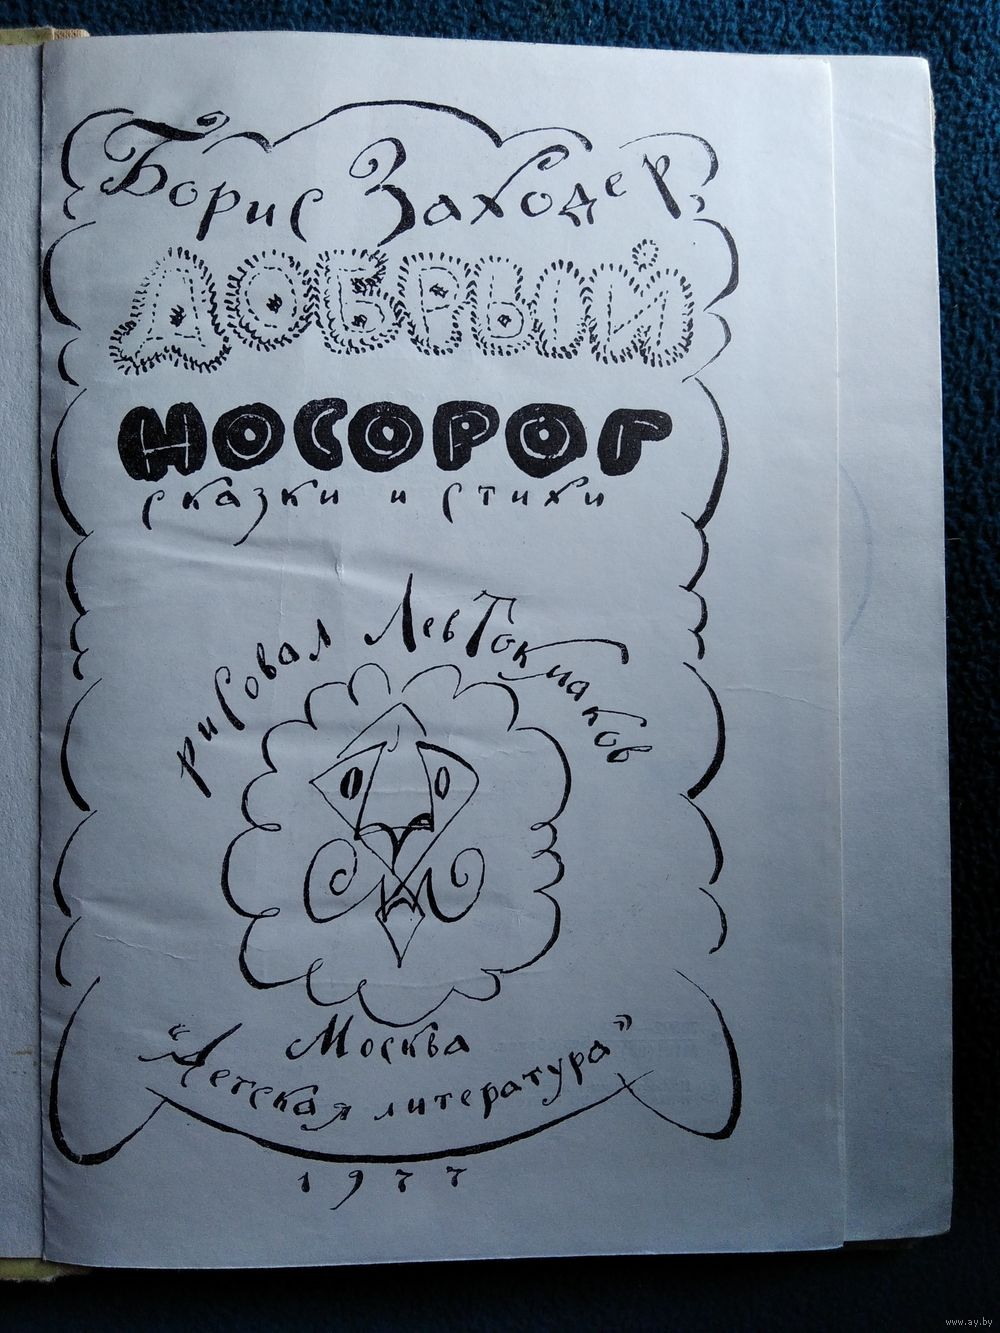 Борис Заходер
ДОБРЫЙ
НОСОРОГ
сказки и стихи
рисовал Лев Токмаков
Москва
"Детская литература"
1977
www.ay.by